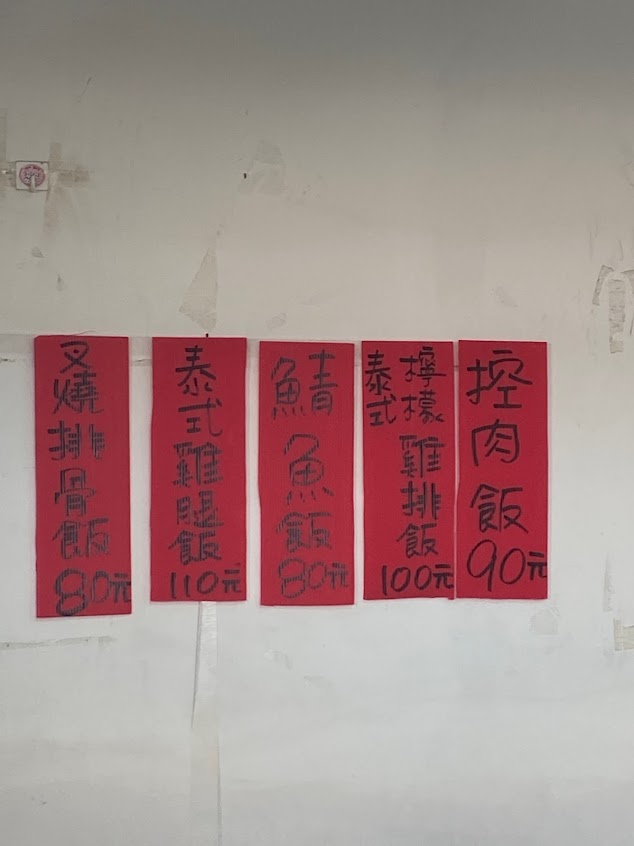 控肉飯
90元
泰式檸檬雞排飯
100元
鯖魚飯
80元
泰式雞腿飯
110元
叉燒排骨飯
80元